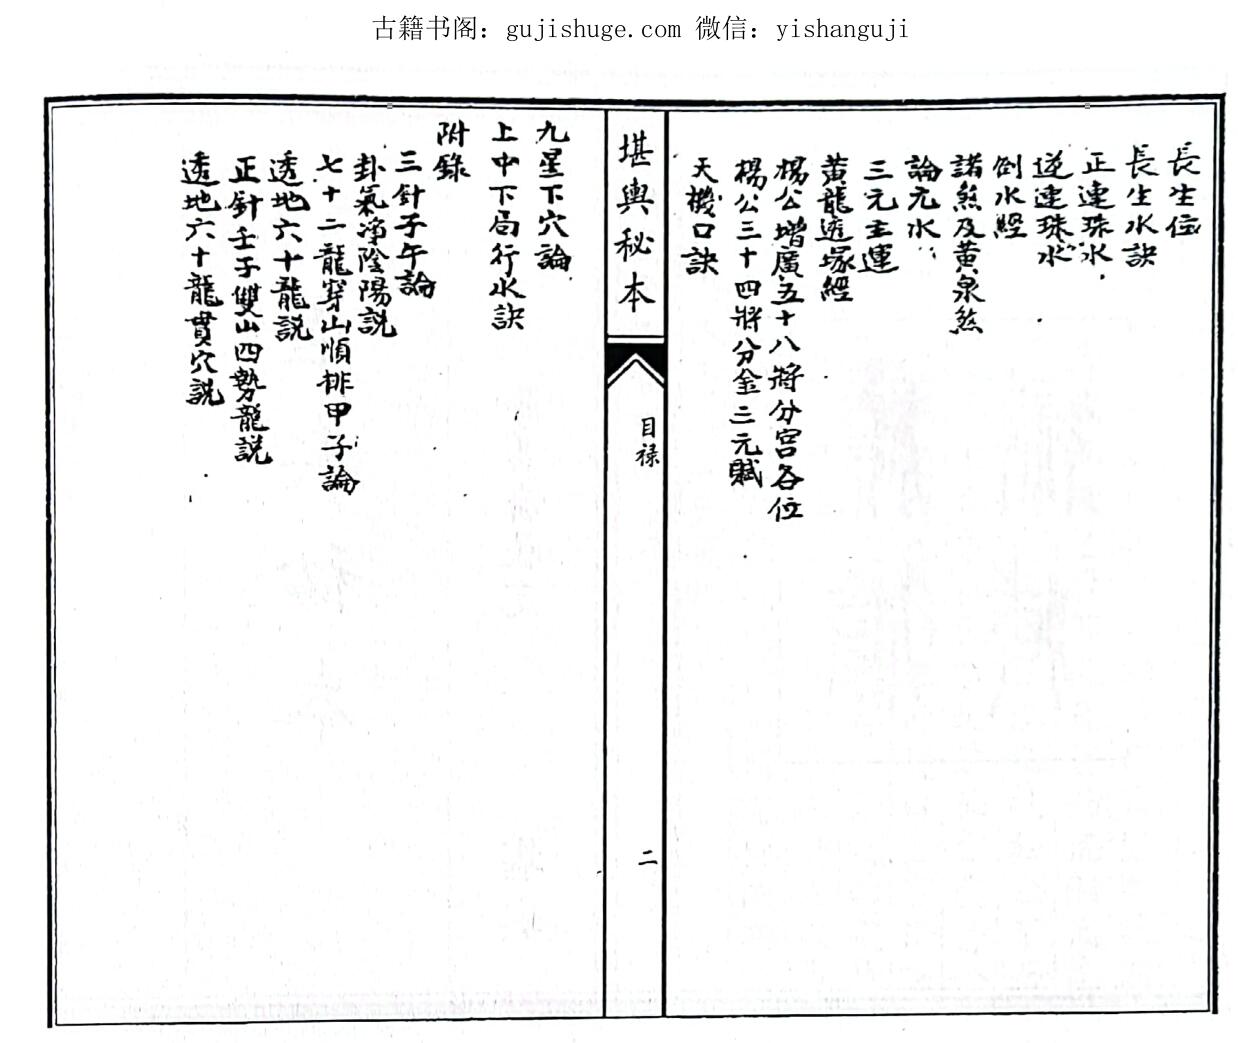 古籍书阁：gujishuge.com 微信：yishanguji
長生位
長生水訣
正連珠水
逆連珠水
倒水經
諸煞及黃泉煞
論元水
三元主運
黃龍透塚經
楊公增廣五十八將分宮各位
楊公三十四將分金三元賦
天機口訣
堪輿秘本
目禄
二
九星下穴論
上中下局行水訣
附錄
三針子午論
卦氣淨陰陽説
七十二龍穿山順排甲子論
透地六十龍説
正針壬子雙山四勢龍説
透地六十龍貫穴説